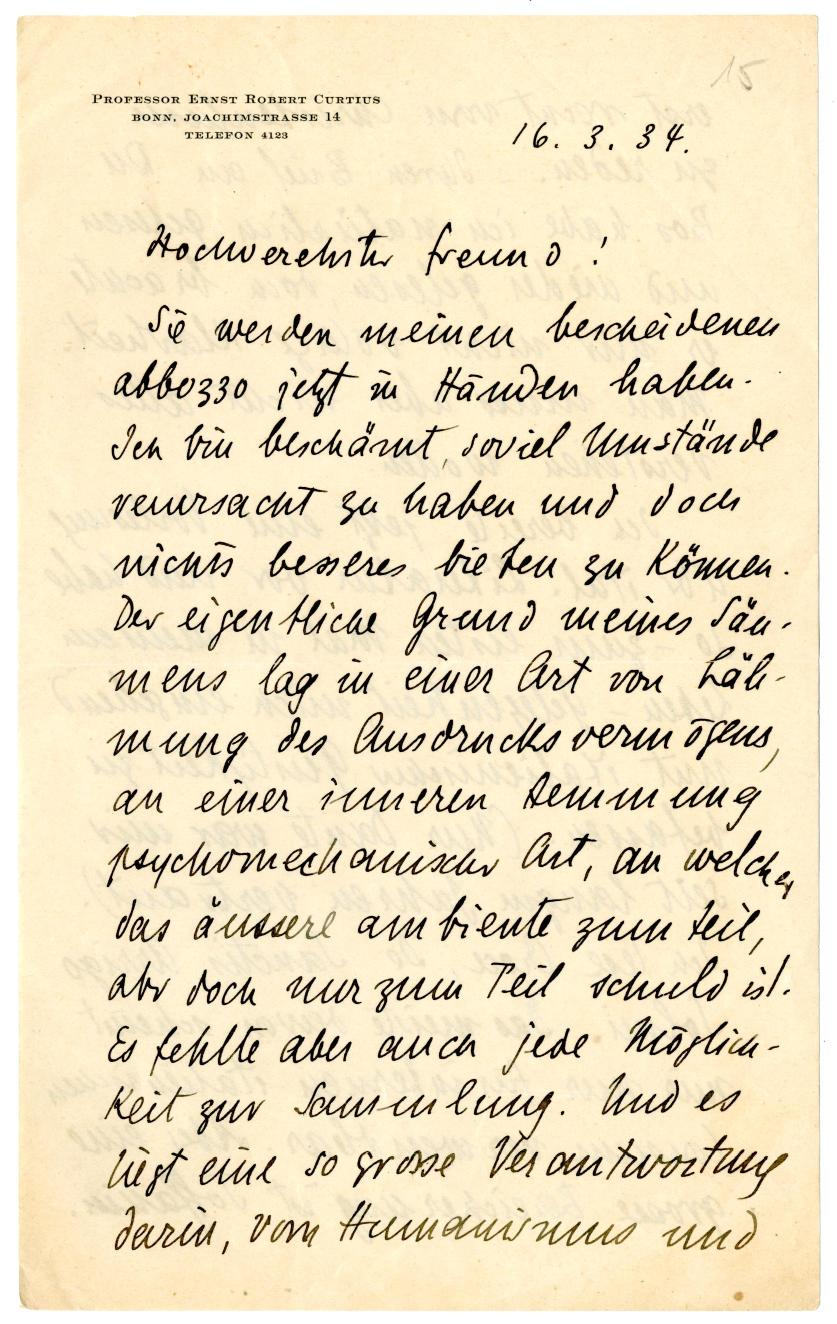 15
PROFESSOR ERNST ROBERT CURTIUS
BONN, JOACHIMSTRASSE 14
TELEFON 4123
16. 3. 34.
Hochverehrter Freund!
Sie werden meinen bescheidenen
abbozzo jetzt in Händen haben.
Ich bin beschämt, soviel Umstände
verursacht zu haben und doch
nichts besseres bieten zu können.
Der eigentliche Grund meines Säu-
mens lag in einer Art von Läh-
mung des Ausdrucksvermögens,
an einer inneren Hemmung
psychomechanischer Art, an welcher
das äussere ambiente zum teil,
aber doch nur zum Teil schuld ist.
Es fehlte aber auch jede Möglich-
keit zur Sammlung. Und es
liegt eine so grosse Verantwortung
darin, vom Humanismus und